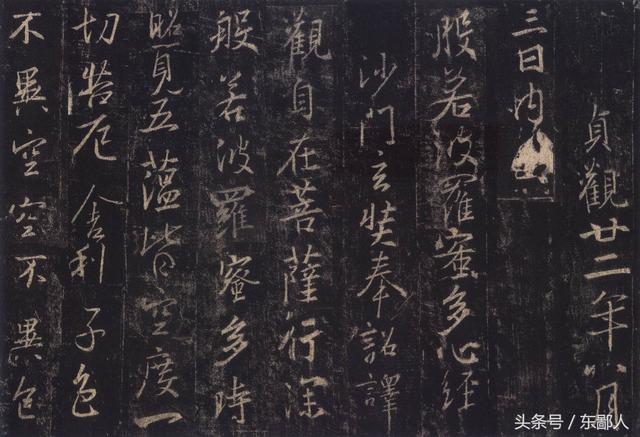 貞觀廿二年八月
三日内
般若波羅蜜多心經
沙門玄奘奉詔譯
觀自在菩薩行深
般若波羅蜜多時
照見五蘊皆空度一
切厄舍利子色
不異空空不異色
头条号 / 东鄙人